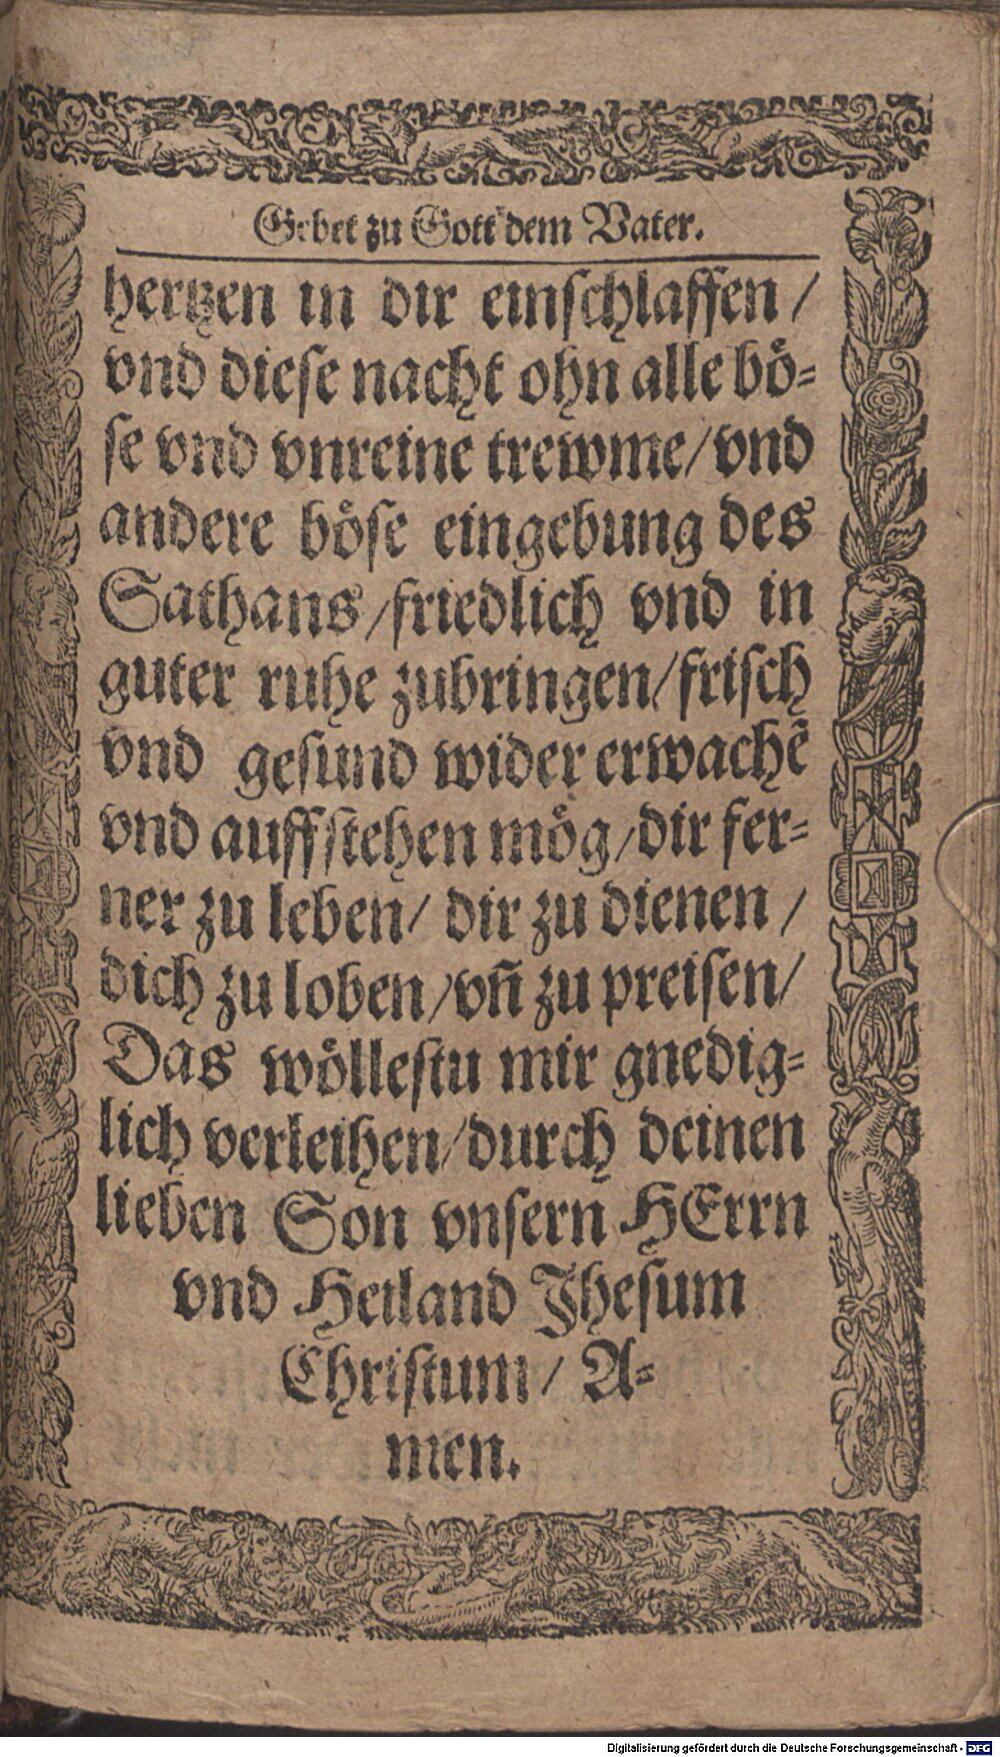 Gebet zu Gott dem Vater.
hertzen in dir einschlaffen /
vnd diese nacht ohn alle bö-
se vnd vnreine trewme / vnd
andere böse eingebung des
Sathans / friedlich vnd in
guter ruhe zubringen / frisch
vnd gesund wider erwachē
vnd auffstehen mög / dir fer-
ner zu leben / dir zu dienen /
dich zu loben / vn̄ zu preisen /
Das wöllestu mir gnedig-
lich verleihen / durch deinen
lieben Son vnsern HErrn
vnd Heiland Jhesum
Christum / A-
men.
Digitalisierung gefördert durch die Deutsche Forschungsgemeinschaft - DFG